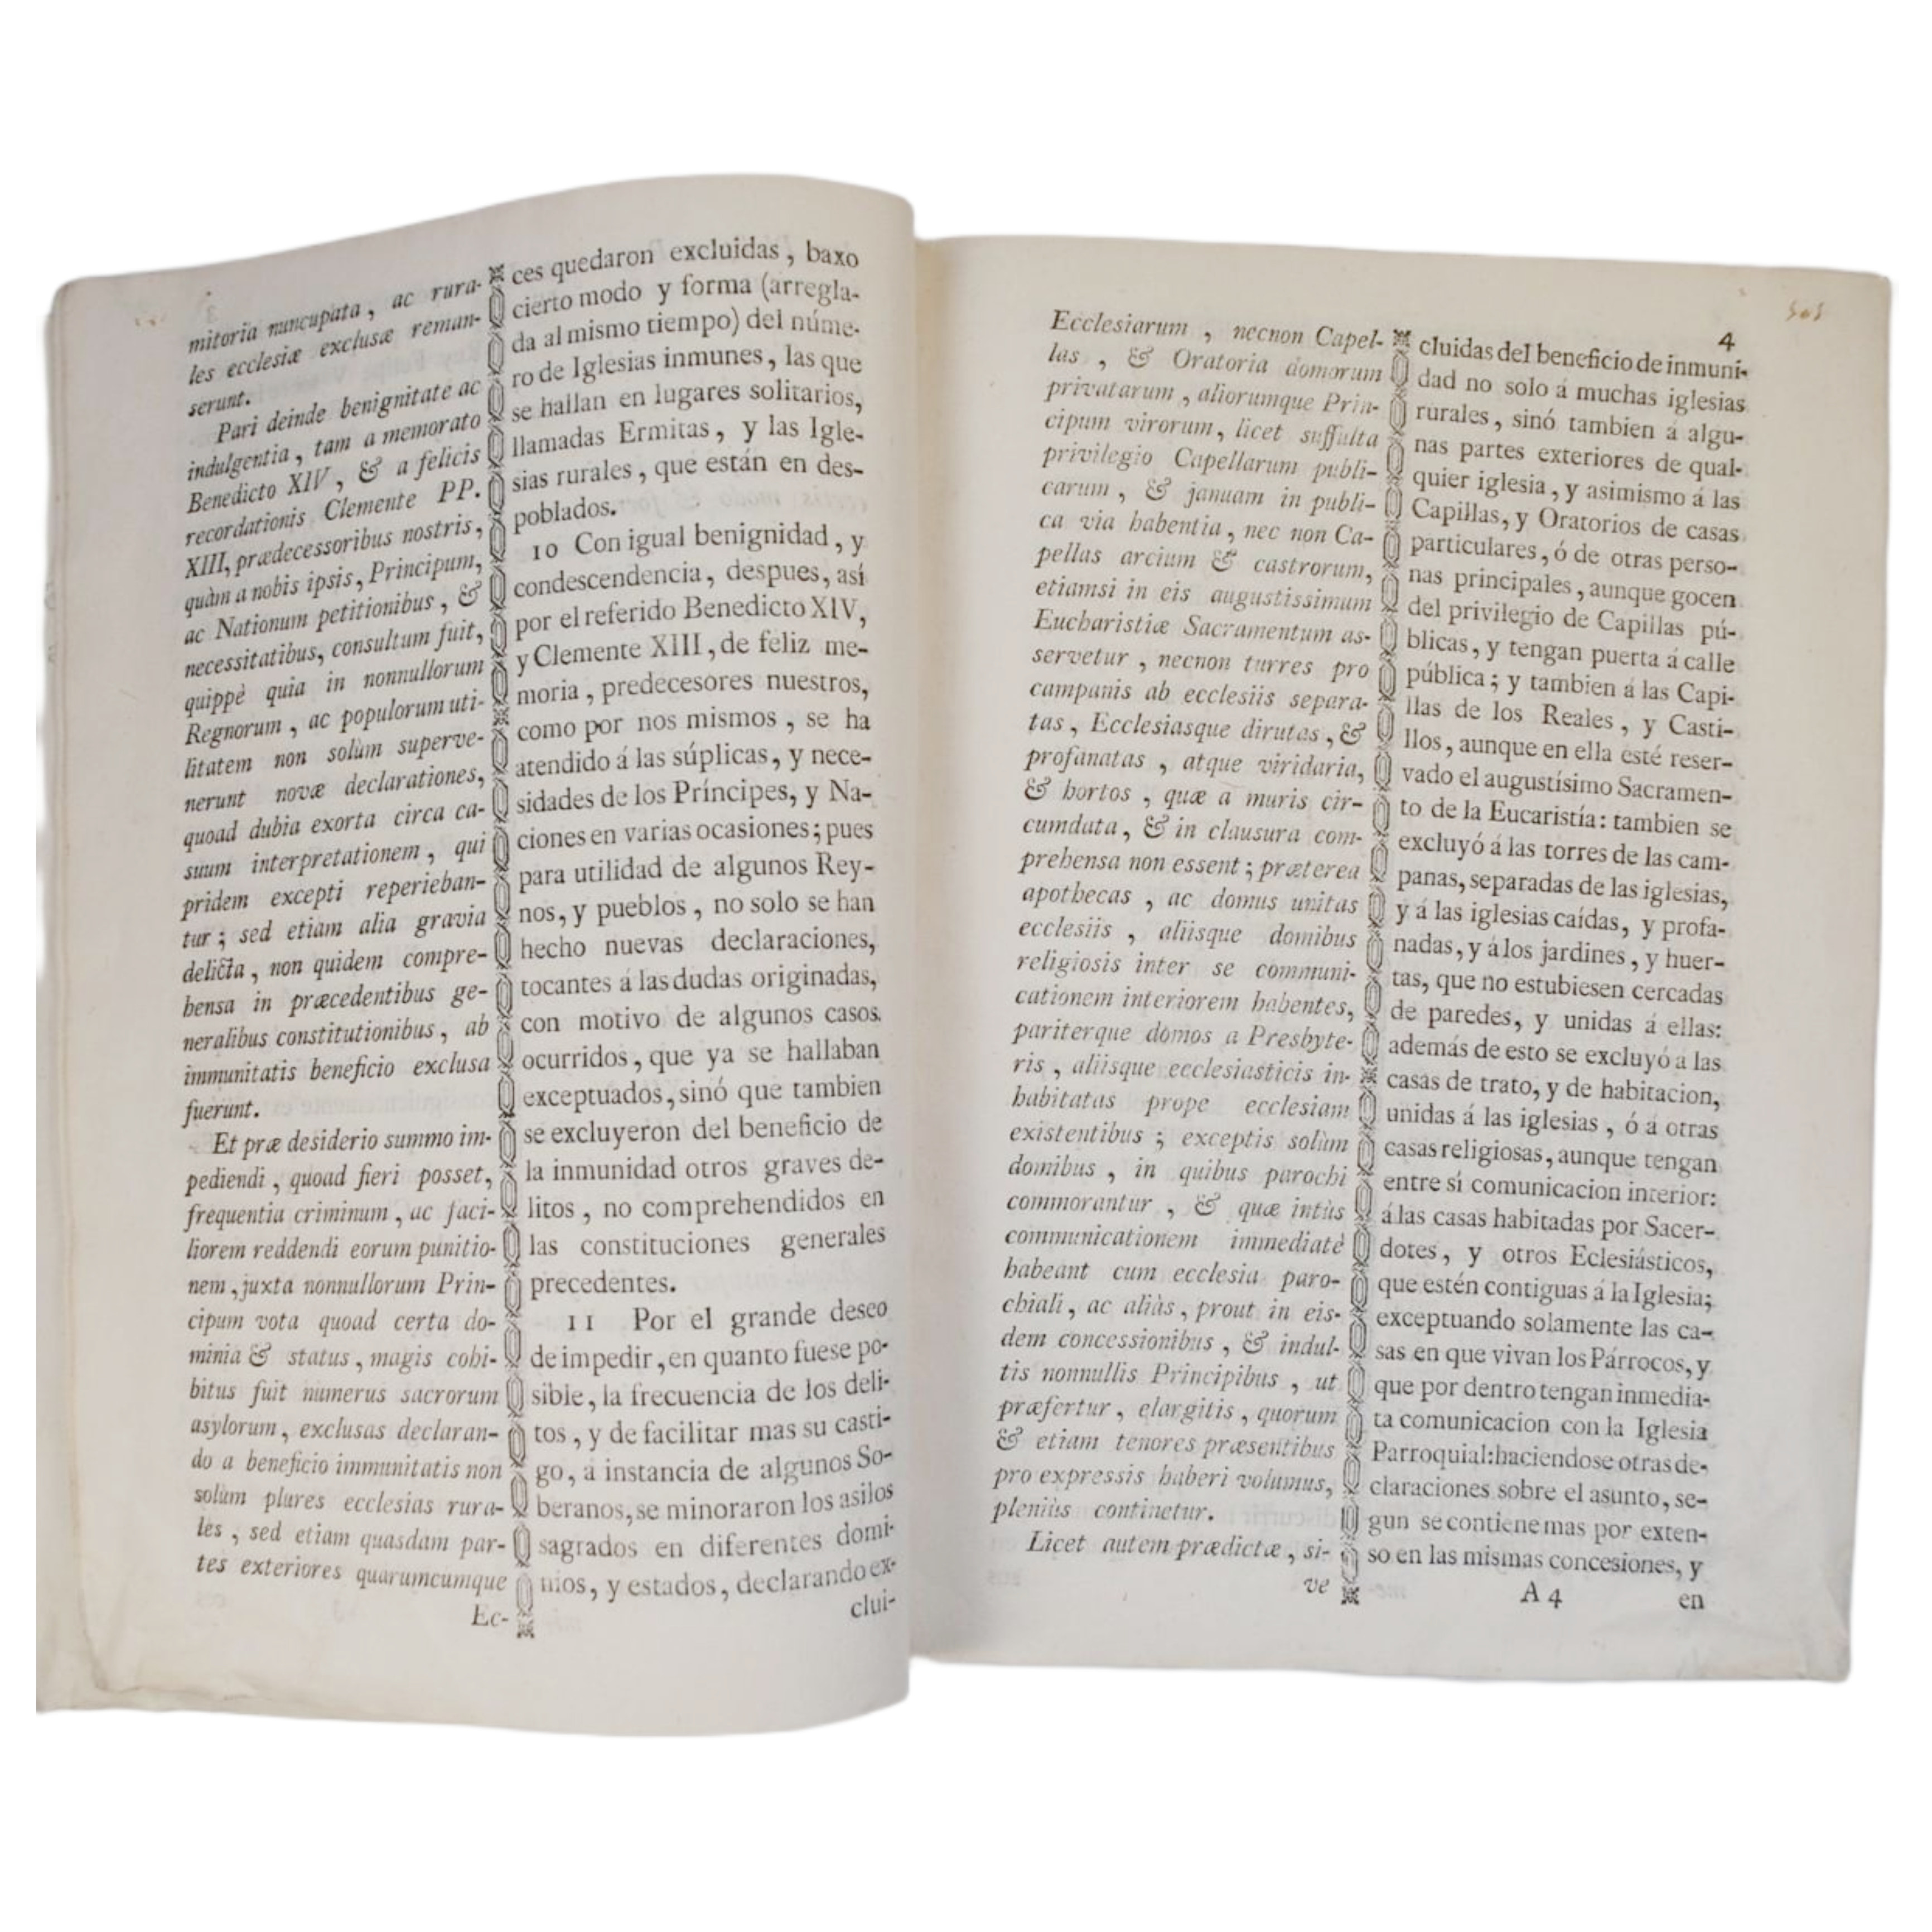 mitoria nuncupata, ac rura-
les ecclesiæ exclusæ reman-
serunt.
Pari deinde benignitate ac
indulgentia, tam a memorato
Benedicto XIV, & a felicis
recordationis Clemente PP.
XIII, prædecessoribus nostris,
quàm a nobis ipsis, Principum,
ac Nationum petitionibus, &
necessitatibus, consultum fuit,
quippè quia in nonnullorum
Regnorum, ac populorum uti-
litatem non solùm superve-
nerunt novæ declarationes,
quoad dubia exorta circa ca-
suum interpretationem, qui
pridem excepti reperieban-
tur; sed etiam alia gravia
delicta, non quidem compre-
hensa in præcedentibus ge-
neralibus constitutionibus, ab
immunitatis beneficio exclusa
fuerunt.
Et præ desiderio summo im-
pediendi, quoad fieri posset,
frequentia criminum, ac faci-
liorem reddendi eorum punitio-
nem, juxta nonnullorum Prin-
cipum vota quoad certa do-
minia & status, magis cohi-
bitus fuit numerus sacrorum
asylorum, exclusas declaran-
do a beneficio immunitatis non
solùm plures ecclesias rura-
les, sed etiam quasdam par-
tes exteriores quarumcumque
Ec-
ces quedaron excluidas, baxo
cierto modo y forma (arregla-
da al mismo tiempo) del núme-
ro de Iglesias inmunes, las que
se hallan en lugares solitarios,
llamadas Ermitas, y las Igle-
sias rurales, que están en des-
poblados.
10 Con igual benignidad, y
condescendencia, despues, así
por el referido Benedicto XIV,
y Clemente XIII, de feliz me-
moria, predecesores nuestros,
como por nos mismos, se ha
atendido á las súplicas, y nece-
sidades de los Príncipes, y Na-
ciones en varias ocasiones; pues
para utilidad de algunos Rey-
nos, y pueblos, no solo se han
hecho nuevas declaraciones,
tocantes á las dudas originadas,
con motivo de algunos casos.
ocurridos, que ya se hallaban
exceptuados, sinó que tambien
se excluyeron del beneficio de
la inmunidad otros graves de-
litos, no comprehendidos en
las constituciones generales
precedentes.
11 Por el grande deseo
de impedir, en quanto fuese po-
sible, la frecuencia de los deli-
tos, y de facilitar mas su casti-
go, a instancia de algunos So-
beranos, se minoraron los asilos
sagrados en diferentes domi-
nios, y estados, declarando ex-
clui-
4
Ecclesiarum, necnon Capel-
las, & Oratoria domorum
privatarum, aliorumque Prin-
cipum virorum, licet suffulta
privilegio Capellarum publi-
carum, & januam in publi-
ca via habentia, nec non Ca-
pellas arcium & castrorum,
etiamsi in eis augustissimum
Eucharistiæ Sacramentum as-
servetur, necnon turres pro
campanis ab ecclesiis separa-
tas, Ecclesiasque dirutas, &
profanatas, atque viridaria,
& hortos, quæ a muris cir-
cumdata, & in clausura com-
prehensa non essent; præterea
apothecas, ac domus unitas
ecclesiis, aliisque domibus
religiosis inter se communi-
cationem interiorem habentes,
pariterque domos a Presbyte-
ris, aliisque ecclesiasticis in-
habitatas prope ecclesiam
existentibus; exceptis solùm
domibus, in quibus parochi
commorantur, & quæ intùs
communicationem immediatè
habeant cum ecclesia paro-
chiali, ac aliàs, prout in eis-
dem concessionibus, & indul-
tis nonnullis Principibus, ut
præfertur, elargitis, quorum
& etiam tenores præsentibus
pro expressis haberi volumus,
pleniùs continetur.
Licet autem prædictæ, si-
ve
cluidas del beneficio de inmuni-
dad no solo á muchas iglesias
rurales, sinó tambien á algu-
nas partes exteriores de qual-
quier iglesia, y asimismo á las
Capillas, y Oratorios de casas
particulares, ó de otras perso-
nas principales, aunque gocen
del privilegio de Capillas pú-
blicas, y tengan puerta á calle
pública; y tambien á las Capi-
llas de los Reales, y Casti-
llos, aunque en ella esté reser-
vado el augustísimo Sacramen-
to de la Eucaristía: tambien se
excluyó á las torres de las cam-
panas, separadas de las iglesias,
y á las iglesias caídas, y profa-
nadas, y á los jardines, y huer-
tas, que no estubiesen cercadas
de paredes, y unidas á ellas:
además de esto se excluyó a las
casas de trato, y de habitacion,
unidas á las iglesias, ó á otras
casas religiosas, aunque tengan
entre sí comunicacion interior:
á las casas habitadas por Sacer-
dotes, y otros Eclesiásticos,
que estén contiguas á la Iglesia;
exceptuando solamente las ca-
sas en que vivan los Párrocos, y
que por dentro tengan inmedia-
ta comunicacion con la Iglesia
Parroquial: haciendose otras de-
claraciones sobre el asunto, se-
gun se contiene mas por exten-
so en las mismas concesiones, y
A 4 en